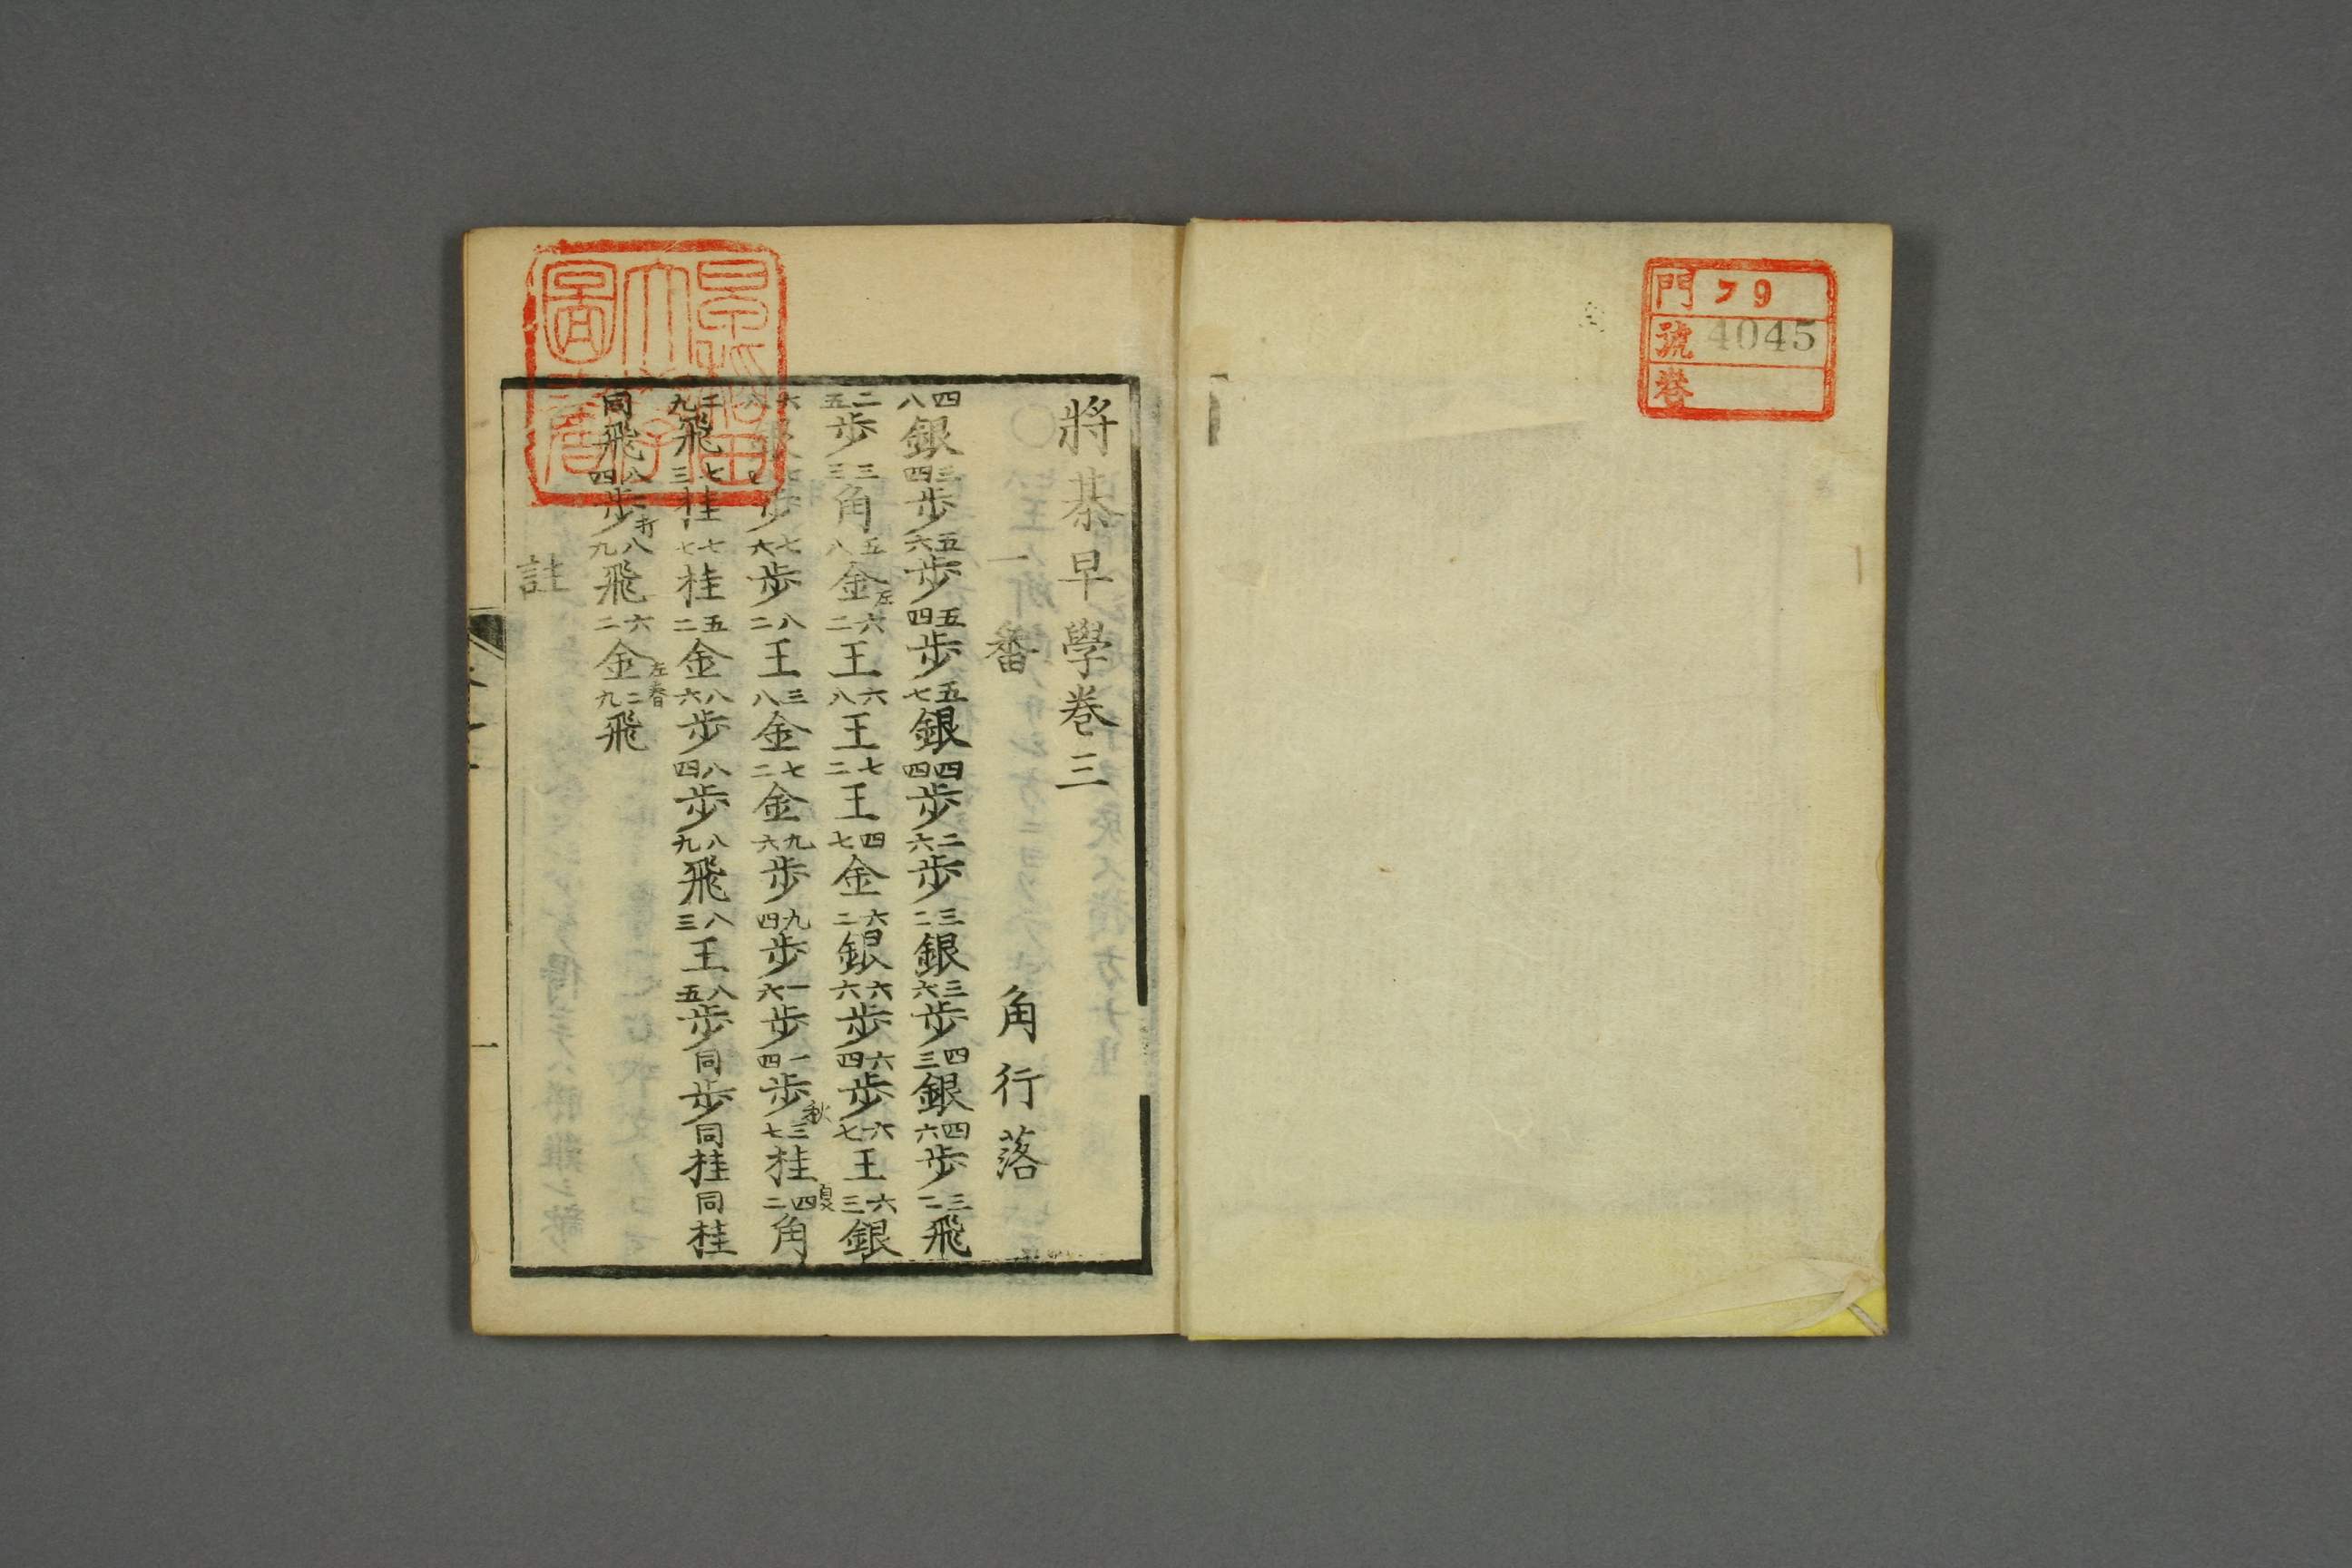 門 79
號 4045
卷
將棊早學卷三
一番 角行落
四八銀 三四歩 五六歩 五四歩 五七銀 四四歩 二六歩 三二銀 三六歩 四三銀 四六歩 三二飛
二五歩 三三角 五八金左 六二王 六八王 七二王 四七金 六二銀 六六歩 六四歩 六七王 六三銀
六八銀 七四歩 七六歩 八二王 三八金 七二金 九六歩 九四歩 一六歩 一四歩秋 三七桂 四二角
二九飛 七三桂 七七桂 五二金 八六歩 八四歩 八九飛 八三王 八五歩 同歩 同桂 同桂
同飛 八四歩打 八九飛 六二金左春 二九飛
註
一